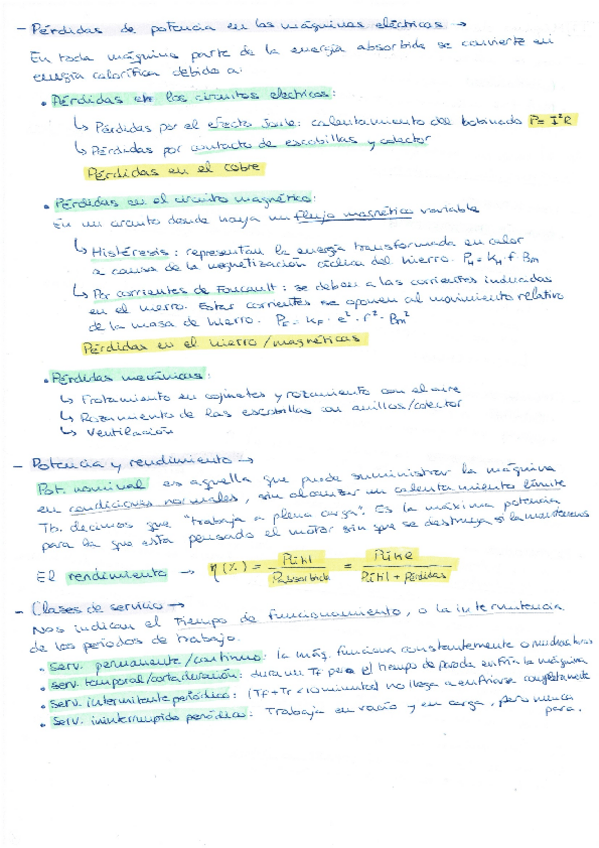 - Pérdidas de potencia en las máquinas eléctricas →
En toda máquina parte de la energía absorbida se convierte en
energía calorífica debido a:
• Pérdidas en los circuitos electricos:
↳ Pérdidas por el efecto Joule: calentamiento del bobinado P = I²R
↳ Pérdidas por contacto de escobillas y colector
Pérdidas en el cobre
• Pérdidas en el circuito magnético:
En un circuito donde haya un flujo magnético variable
↳ Histéresis: representan la energía transformada en calor
a causa de la magnetización cíclica del hierro. PH = KH · f · Bm
↳ Por corrientes de Foucault: se deben a las corrientes inducidas
en el hierro. Estas corrientes se oponen al movimiento relativo
de la masa de hierro. PF = KF · e² · f² · Bm²
Pérdidas en el hierro / magnéticas
• Pérdidas mecánicas:
↳ en cojinetes y rozamiento con el aire
↳ Rozamiento de las escobillas con anillos/colector
↳ Ventilación
- Potencia y rendimiento →
Pot. nominal es aquella que puede suministrar la máquina
en condiciones normales, sin alcanzar un calentamiento límite
Tb. decimos que "trabaja a plena carga". Es la máxima potencia
para la que está pensado el motor sin que se destruya si la mantenemos
El rendimiento → η (%) = Pútil / Pabsorbida = Pútil / Pútil + Pérdidas
- Clases de servicio →
Nos indican el tiempo de funcionamiento, o la intermitencia
de los periodos de trabajo.
• Serv. permanente/continuo: la máq. funciona constantemente o
• Serv. temporal/corta duración: dura un TF pero el tiempo de parada enfría la máquina
• Serv. intermitente periódico: (TF + Tr < 10 minutos) no llega a enfriarse completamente
• Serv. ininterrumpido periódico: Trabaja en vacío y en carga, pero nunca
para.